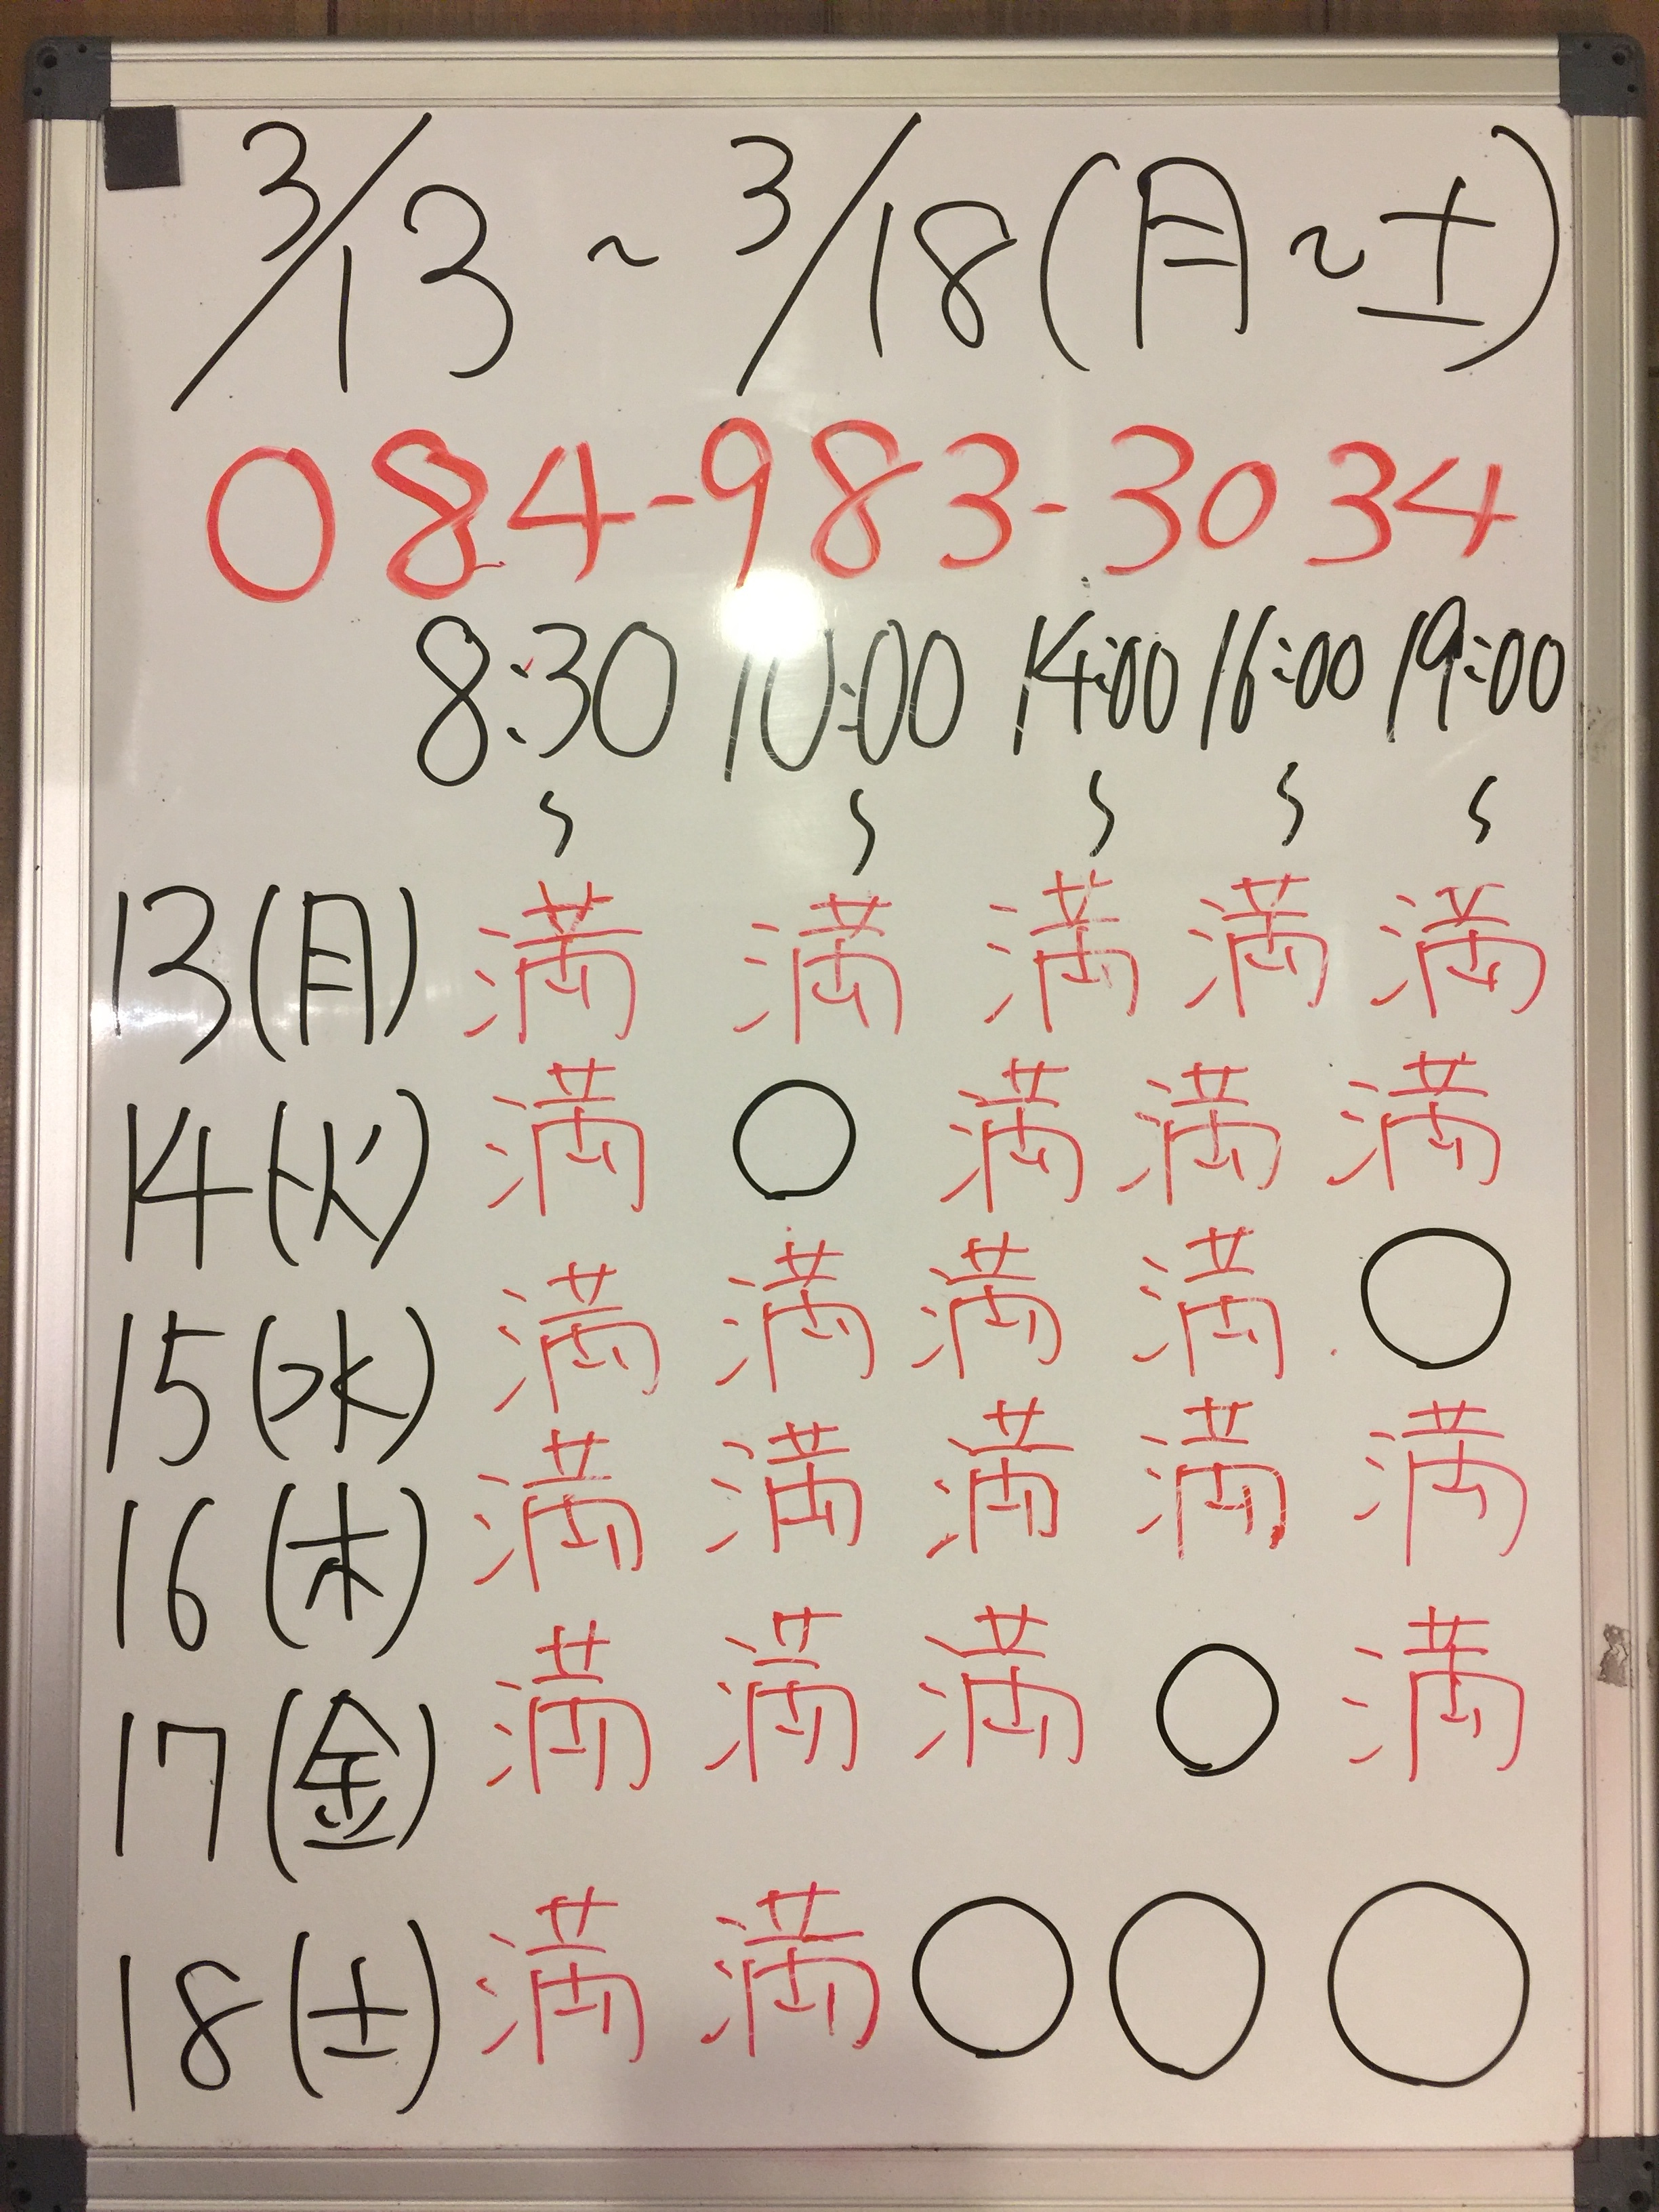 3/13～3/18(月～土)
084-983-3034
8:30 10:00 14:00 16:00 19:00
～ ～ ～ ～ ～
13(月) 満 満 満 満 満
14(火) 満 ○ 満 満 満
15(水) 満 満 満 満 ○
16(木) 満 満 満 満 満
17(金) 満 満 満 ○ 満
18(土) 満 満 ○ ○ ○